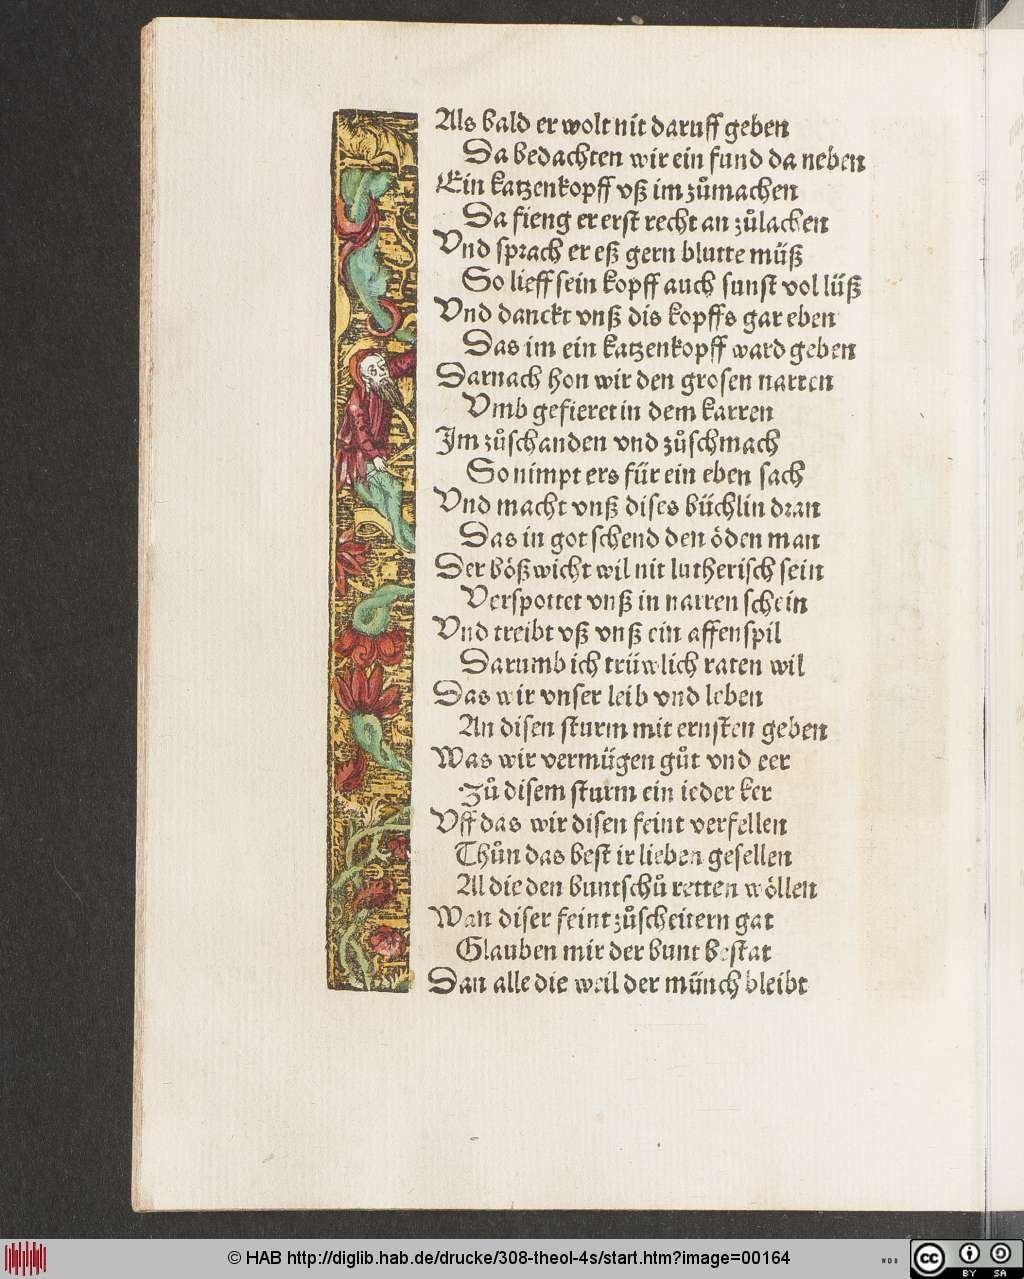 Als bald er wolt nit daruff geben
Da bedachten wir ein fund da neben
Ein katzenkopff vß im zůmachen
Da fieng er erst recht an zůlachen
Vnd sprach er eß gern blutte müß
So lieff sein kopff auch sunst vol lüß
Vnd danckt vnß dis kopffs gar eben
Das im ein katzenkopff ward geben
Darnach hon wir den grosen narren
Vmb gefieret in dem karren
Im zůschanden vnd zůschmach
So nimpt ers für ein eben sach
Vnd macht vnß dises büchlin dran
Das in got schend den öden man
Der bößwicht wil nit lutherisch sein
Verspottet vnß in narren schein
Vnd treibt vß vnß ein affenspil
Darumb ich trüwlich raten wil
Das wir vnser leib vnd leben
An disen sturm mit ernsten geben
Was wir vermügen gůt vnd eer
Zů disem sturm ein ieder ker
Vff das wir disen feint verfellen
Thůn das best ir lieben gesellen
Al die den buntschů retten wöllen
Wan diser feint zůscheitern gat
Glauben mir der bunt bestat
Dan alle die weil der münch bleibt
© HAB http://diglib.hab.de/drucke/308-theol-4s/start.htm?image=00164
WDB
cc BY SA